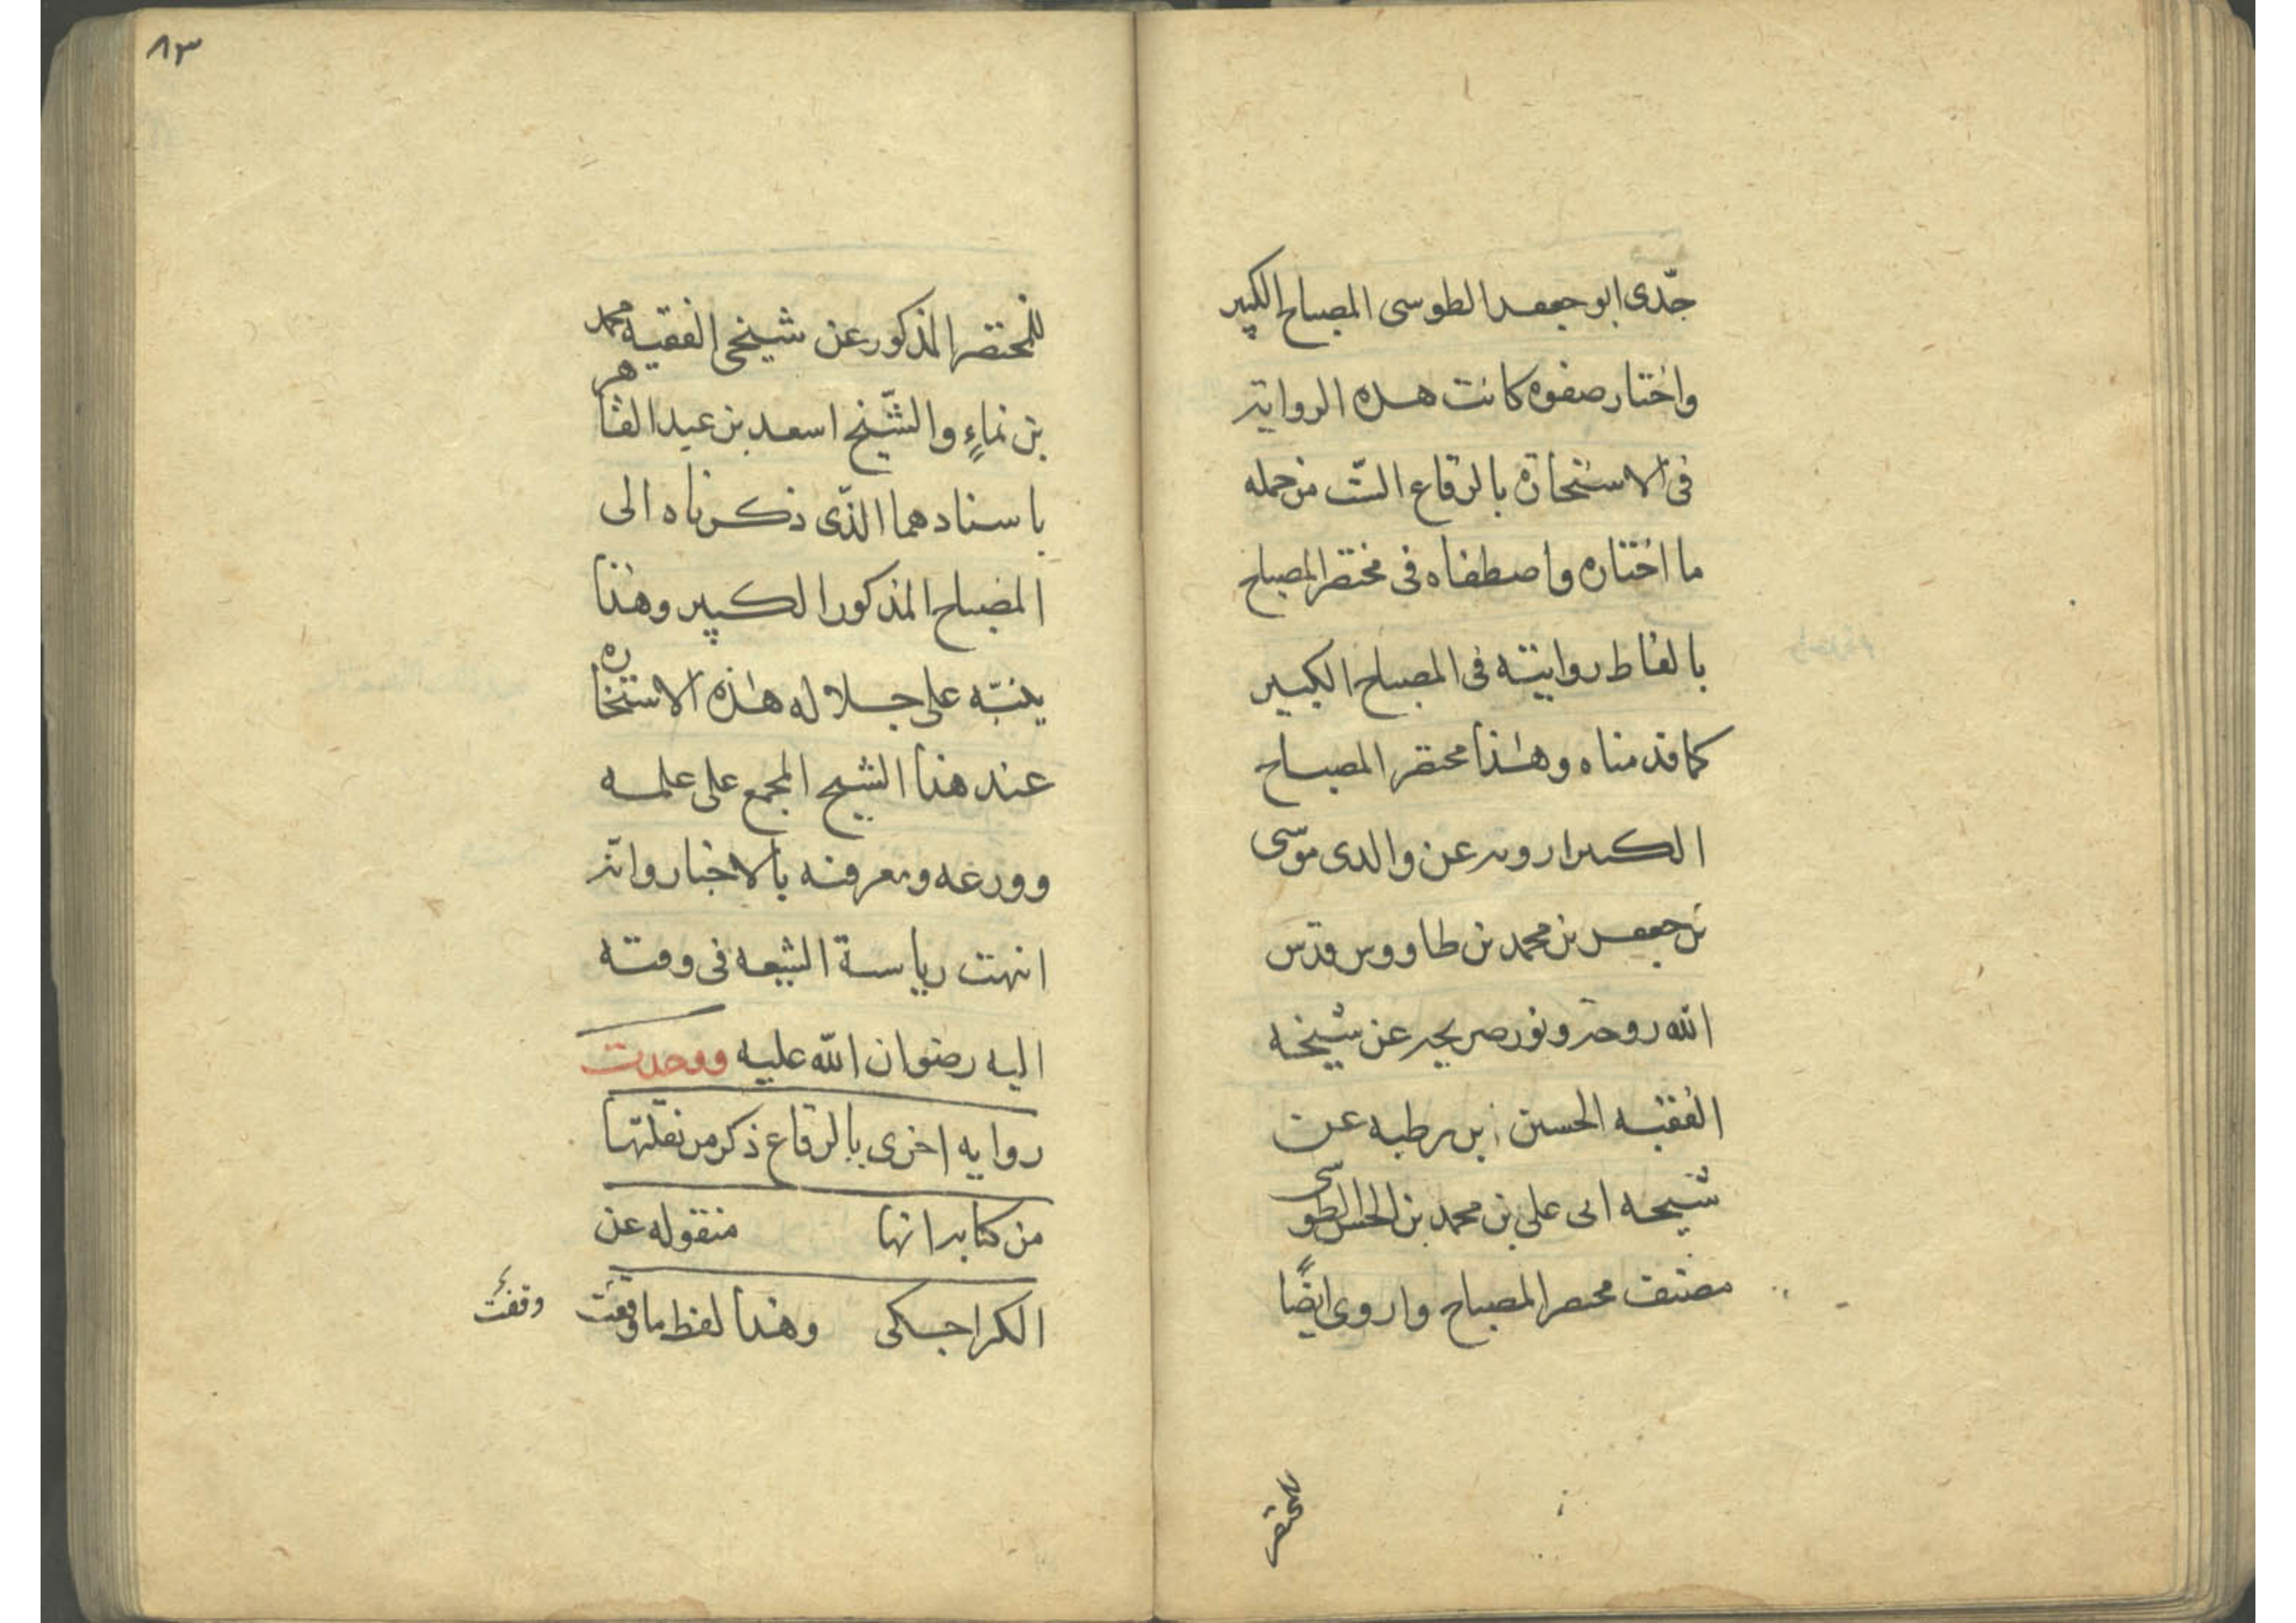 جدّى ابو جعفر الطوسى المصباح الكبير
واختار صفوه كانت هذه الرواية
فى الاستخاره بالرقاع الستّ من جمله
ما اختاره واصطفاه فى مختصر المصباح
بالفاظ روايته فى المصباح الكبير
كما قدمناه وهذا مختصر المصباح
الكبير ارويه عن والدى موسى
بن جعفر بن محمد بن طاووس قدس
الله روحه ونور ضريحه عن شيخه
الفقيه الحسين بن رطبه عن
شيخه ابى على بن محمد بن الحسن الطوسى
مصنف مختصر المصباح واروى ايضًا
للمختصر
٨٣
للمختصر المذكور عن شيخى الفقيه محمد
بن نماءٍ والشّيخ اسعد بن عبد القاهر
باسنادهما الذّى ذكرناه الى
المصباح المذكور الكبير وهذا
ينبّه على جلاله هذه الاستخاره
عند هذا الشيخ المجمع على علمه
وورعه ومعرفته بالاخبار وانّه
انهت رياسة الشيعه فى وقته
اليه رضوان الله عليه ووجدت
روايه اخرى بالرقاع ذكر من نقلتها
من كتابه انها منقوله عن
الكراجكى وهذا لفظ ما وقفت
وقفت